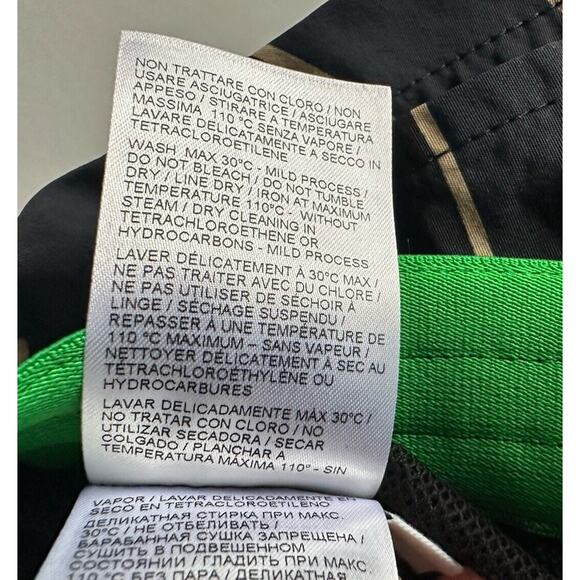 NON TRATTARE CON CLORO / NON
USARE ASCIUGATRICE / ASCIUGARE
APPESO / STIRARE A TEMPERATURA
MASSIMA 110 °C SENZA VAPORE /
LAVARE DELICATAMENTE A SECCO IN
TETRACLOROETILENE
WASH MAX 30°C - MILD PROCESS /
DO NOT BLEACH / DO NOT TUMBLE
DRY / LINE DRY / IRON AT MAXIMUM
TEMPERATURE 110°C - WITHOUT
STEAM / DRY CLEANING IN
TETRACHLOROETHENE OR
HYDROCARBONS - MILD PROCESS
LAVER DÉLICATEMENT À 30°C MAX /
NE PAS TRAITER AVEC DU CHLORE /
NE PAS UTILISER DE SÉCHOIR À
LINGE / SÉCHAGE SUSPENDU /
REPASSER À UNE TEMPÉRATURE DE
110 °C MAXIMUM – SANS VAPEUR /
NETTOYER DÉLICATEMENT À SEC AU
TÉTRACHLOROÉTHYLÈNE OU
HYDROCARBURES
LAVAR DELICADAMENTE MAX 30°C /
NO TRATAR CON CLORO / NO
UTILIZAR SECADORA / SECAR
COLGADO / PLANCHAR A
TEMPERATURA MÁXIMA 110° - SIN
VAPOR / LAVAR DELICADAMENTE EN
SECO EN TETRACLOROETILENO
ДЕЛИКАТНАЯ СТИРКА ПРИ МАКС.
30°C / НЕ ОТБЕЛИВАТЬ /
БАРАБАННАЯ СУШКА ЗАПРЕЩЕНА /
СУШИТЬ В ПОДВЕШЕННОМ
СОСТОЯНИИ / ГЛАДИТЬ ПРИ МАКС.
110 °C БЕЗ ПАРА / ДЕЛИКАТНАЯ